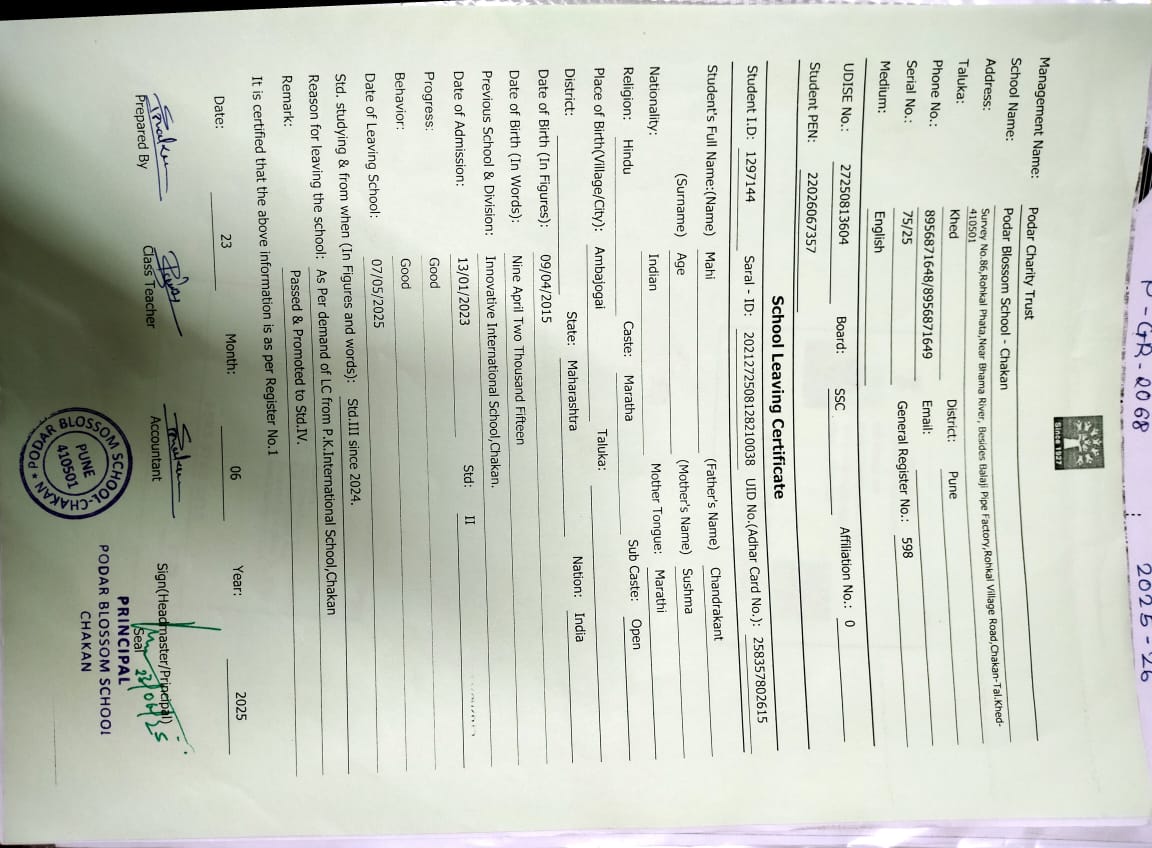 P-GR-2068 : 2025-26
Since 1927
Management Name: Podar Charity Trust
School Name: Podar Blossom School - Chakan
Address: Survey No.86,Rohkal Phata,Near Bhama River, Besides Balaji Pipe Factory,Rohkal Village Road,Chakan-Tal.Khed-
410501
Taluka: Khed District: Pune
Phone No.: 8956871648/8956871649 Email:
Serial No.: 75/25 General Register No.: 598
Medium: English
UDISE No.: 27250813604 Board: SSC Affiliation No.: 0
Student PEN: 22026067357
School Leaving Certificate
Student I.D: 1297144 Saral - ID: 2021272508128210038 UID No.(Adhar Card No.): 258357802615
Student's Full Name:(Name) Mahi (Father's Name) Chandrakant
(Surname) Age (Mother's Name) Sushma
Nationality: Indian Mother Tongue: Marathi
Religion: Hindu Caste: Maratha Sub Caste: Open
Place of Birth(Village/City): Ambajogai Taluka:
District: State: Maharashtra Nation: India
Date of Birth (In Figures): 09/04/2015
Date of Birth (In Words): Nine April Two Thousand Fifteen
Previous School & Division: Innovative International School,Chakan.
Date of Admission: 13/01/2023 Std: II
Progress: Good
Behavior: Good
Date of Leaving School: 07/05/2025
Std. studying & from when (In Figures and words): Std.III since 2024.
Reason for leaving the school: As Per demand of LC from P.K.International School,Chakan
Remark: Passed & Promoted to Std.IV.
It is certified that the above information is as per Register No.1
Date: 23 Month: 06 Year: 2025
Prepared By Class Teacher Accountant Sign(Headmaster/Principal)
Seal 23/06/25
PODAR BLOSSOM SCHOOL-CHAKAN *
PUNE
410501
PRINCIPAL
PODAR BLOSSOM SCHOOL
CHAKAN